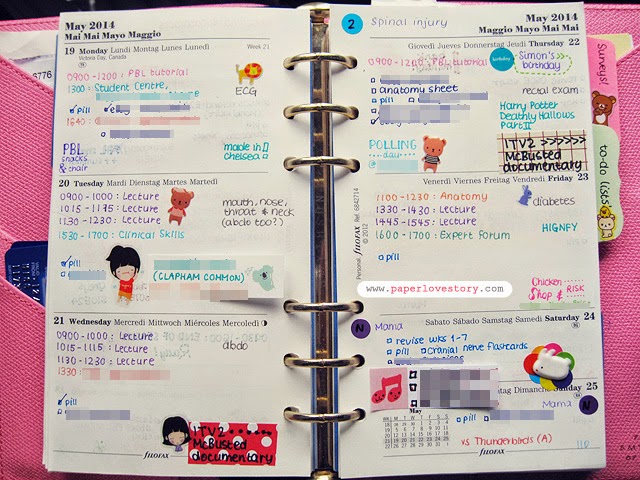 May 2014
Mai Mai Mayo Maggio
19 Monday Lundi Montag Lunes Lunedì
Victoria Day, Canada
Week 21
0900-1200 : PBL tutorial
1300 : Student Centre,
ECG
pill
1640 :
PBL
snacks
& chair
made in
chelsea
20 Tuesday Mardi Dienstag Martes Martedì
0900-1000 : Lecture
1015-1115 : Lecture
1130-1230 : Lecture
1530-1700 : Clinical Skills
mouth, nose,
throat & neck
(abdo too?)
pill
(CLAPHAM COMMON)
21 Wednesday Mercredi Mittwoch Miércoles Mercoledì
0900-1000 : Lecture
1015-1115 : Lecture
1130-1230 : Lecture
1330 :
abdo
pill
ITV2
McBusted
documentary
fILOFAX
6776
Personal fILOFAX © 2012 Ref. 6842714
2 Spinal injury
May 2014
Maggio Mayo Mai Mai
Giovedì Jueves Donnerstag Jeudi Thursday 22
0900-1200 : PBL tutorial
birthday
Simon's
birthday
anatomy sheet
pill
rectal exam
Harry Potter
Deathly Hallows
Part II
POLLING
day
ITV2 >>>>>>
McBusted
documentary
Venerdì Viernes Freitag Vendredi Friday 23
1100-1230 : Anatomy
1330-1430 : Lecture
1445-1545 : Lecture
1600-1700 : Expert Forum
diabetes
HIGNFY
pill
www.paperlovestory.com
Chicken
Shop & RISK
Sabato Sábado Samstag Samedi Saturday 24
N Mama
revise wks 1-7
pill
Cranial nerve flashcards
Domenica Domingo Sonntag Dimanche Sunday 25
May
pill
Mama N
vs Thunderbirds (A)
110
fILOFAX
Surveys!
to-do lists